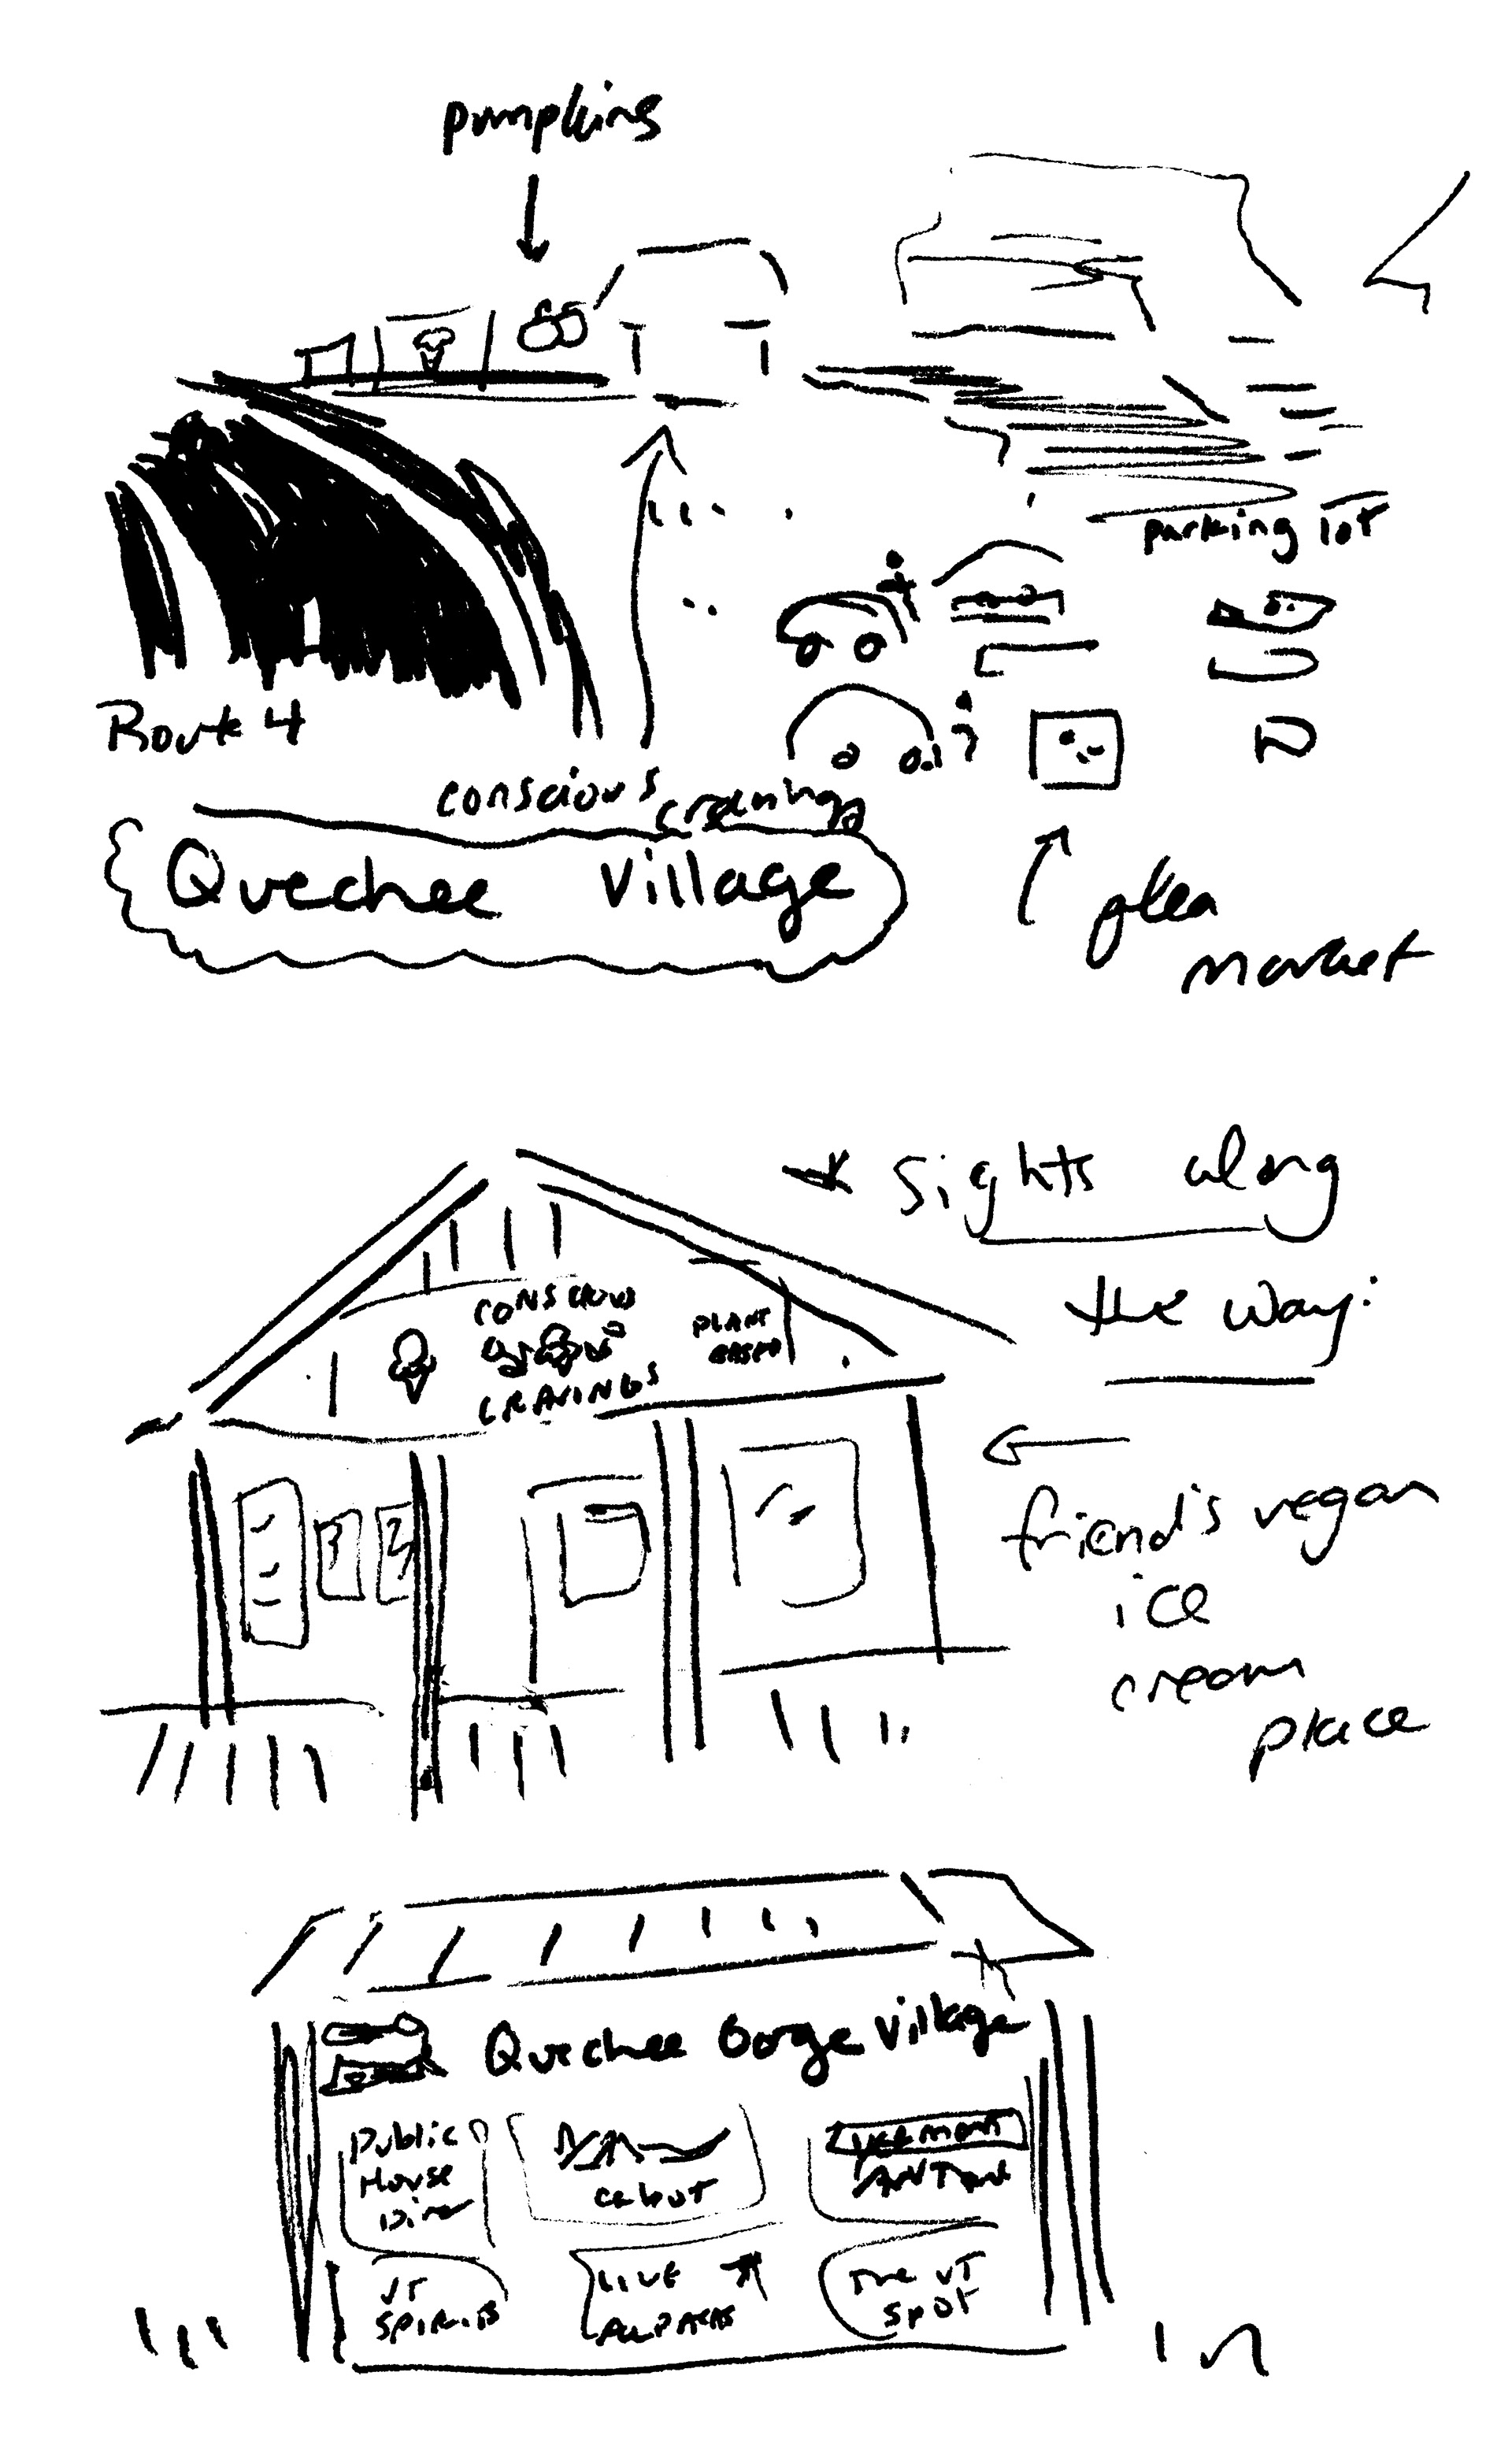 pumpkins
parking lot
Route 4
conscious cravings
Quechee Village
flea
market
* Sights along
the way:
CONSCIOUS
CRAVINGS
PLANT
BASED
friend's vegan
ice
cream
place
Quechee Gorge Village
Public
House
Diner
cabot
VERMONT
ANTIQUE
VT
SPIRITS
LIVE
ALPACAS
THE VT
SPOT